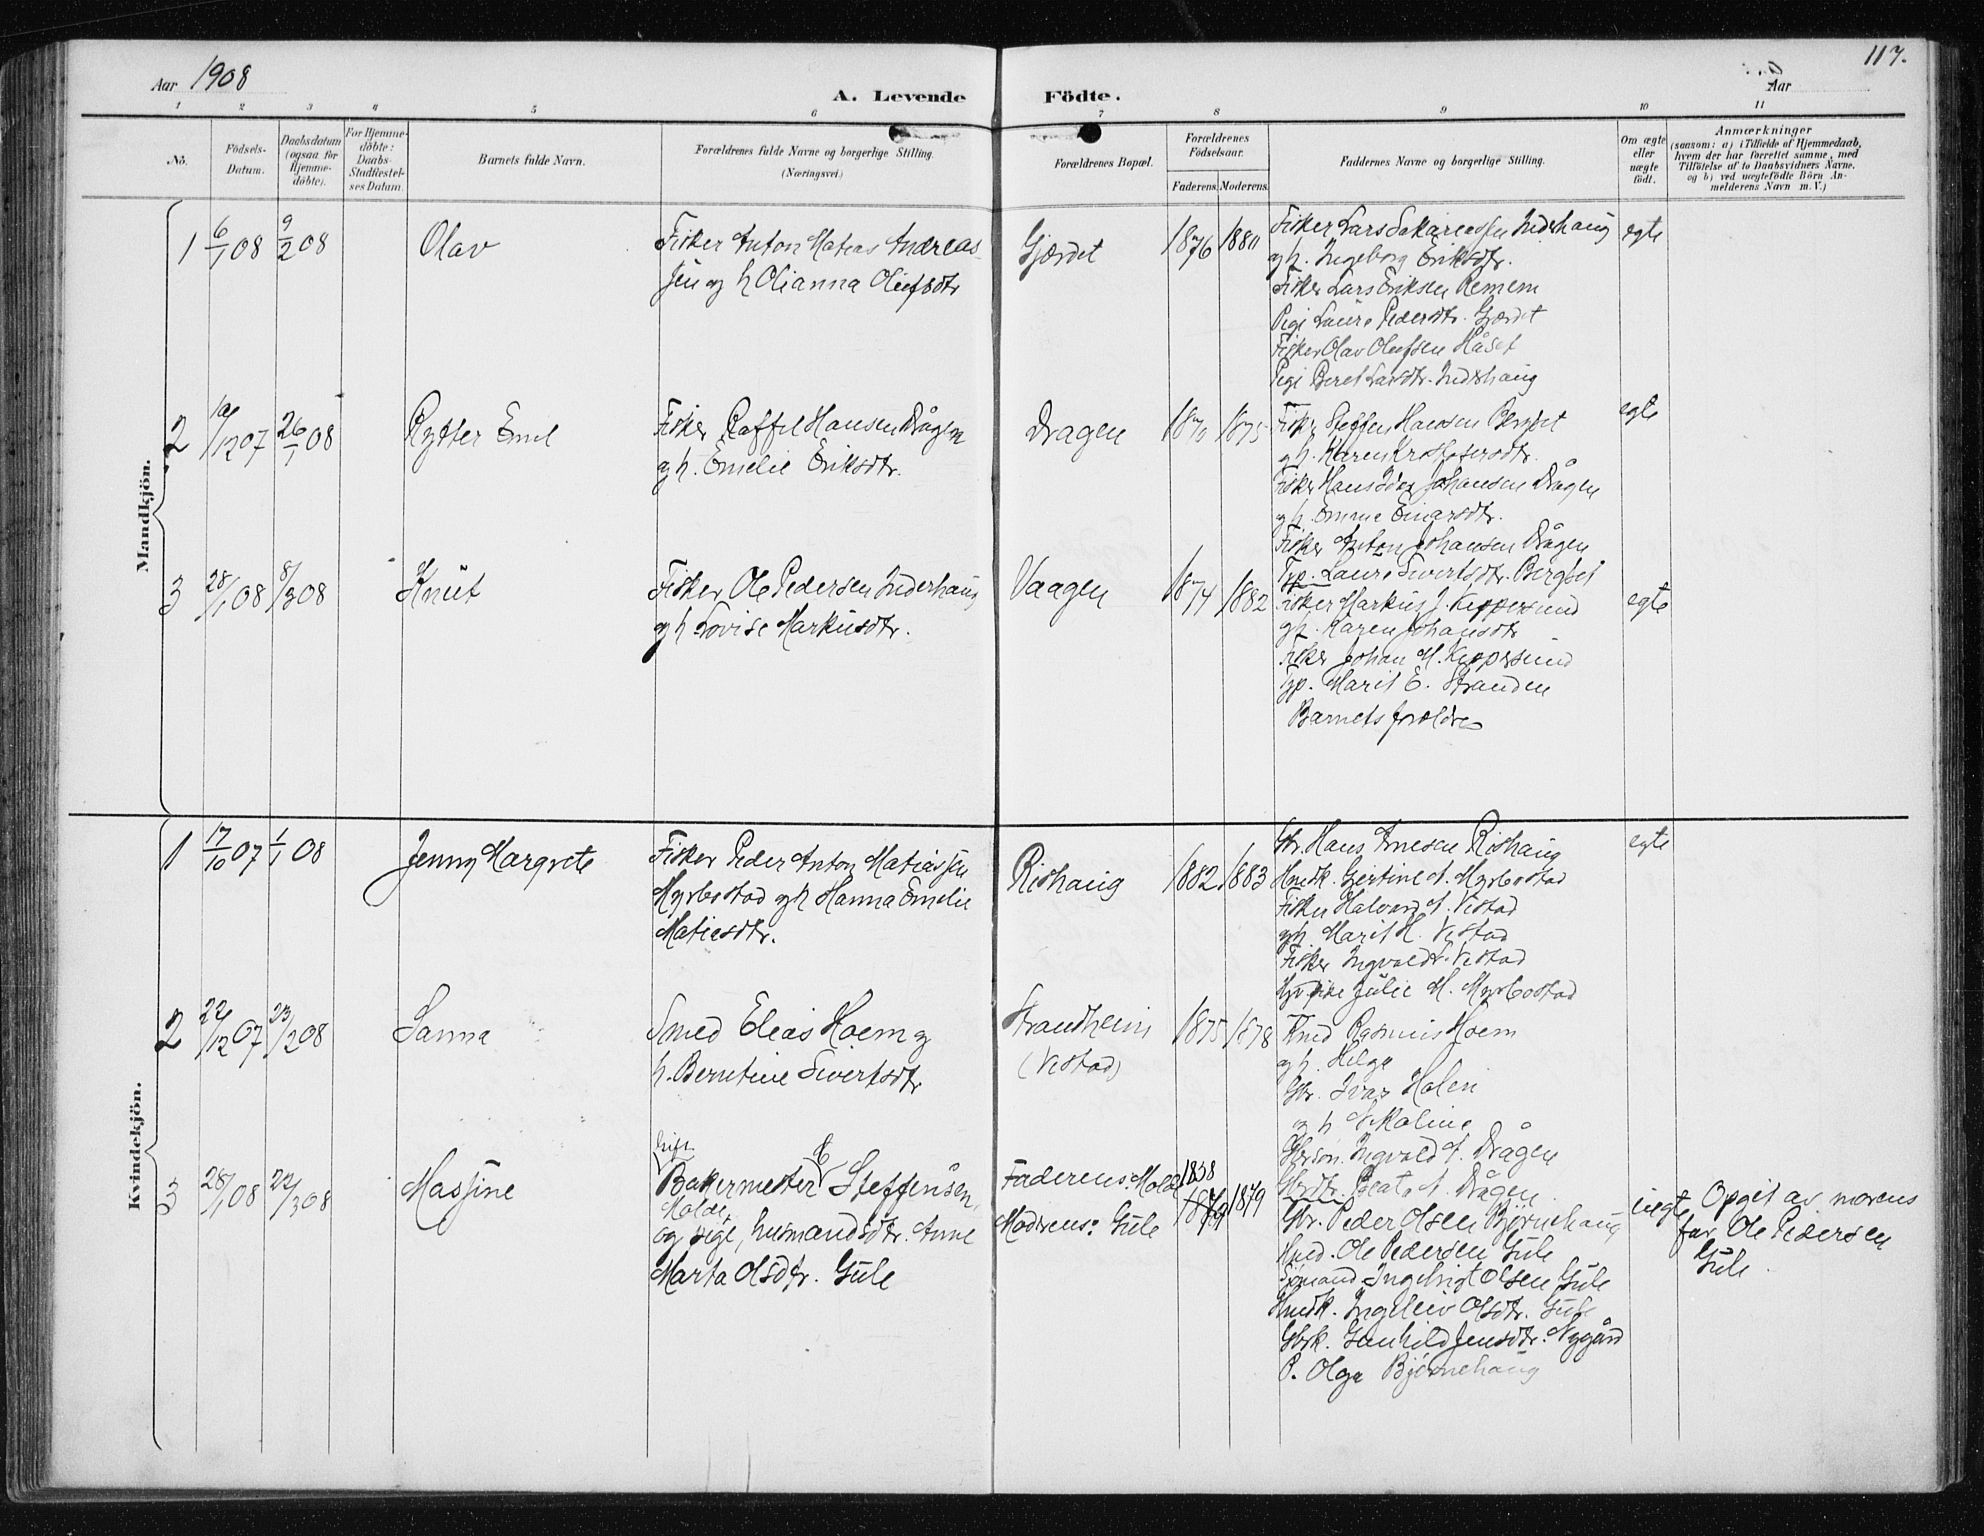 Aar 1908
A. Levende Födte.
Aar
117.
1 2 3 4 5 6 7 8 9 10 11
No.
Födsels-Datum.
Daabsdatum (ogsaa for Hjemme-döbte).
For Hjemme-döbte: Daabs-Stadfestel-ses Datum.
Barnets fulde Navn.
Forældrenes fulde Navne og borgerlige Stilling.
(Næringsvei.)
Forældrenes Bopæl.
Forældrenes Födselsaar.
Faderens. Moderens.
Faddernes Navne og borgerlige Stilling.
Om ægte eller uægte födt.
Anmærkninger
(saasom: a) i Tilfælde af Hjemmedaab,
hvem der har forrettet samme, med
Tilföielse af to Daabsvidners Navne,
og b) ved uægtefödte Börn An-
melderens Navn m. V.)
Mandkjön.
1 6/1 08 9/2 08 Olav
Fisker Anton Matias Andreas-
sen og h Olianna Olufsdtr
Gjærdet 1876 1880
Fisker Lars Sakariassen Inderhaug
og h. Ingeborg Eriksdtr.
Fisker Lars Eriksen Remem
Pige Laura Pedersdtr. Gjærdet
Fisker Olav Olufsen Håset
Pige Beret Larsdtr. Inderhaug
egte
2 /12 07 26/1 08 Rytter Emil
Fisker Raffel Hansen Drågen
og h. Emelie Eriksdtr.
Dragen 1870 1875
Fisker Steffen Hansen Bergset
og h. Karen Kristofersdtr.
Fisker Hans Johansen Drågen
og h. Emma Einarsdtr.
Fisker Anton Johansen Drågen
Gp. Laura Sivertsdtr. Bergset
egte
3 28/1 08 8/3 08 Knut
Fisker Ole Pedersen Inderhaug
og h Lovise Markusdtr.
Vaagen 1874 1882
Fisker Markus J. Keppersund
og h. Karen Johansdtr
Fisker Johan M. Keppersund
Gp. Marit E. Stranden
Barnets forældre
egte
Kvindekjön.
1 17/10 07 1/1 08 Jenny Margrete
Fisker Peder Anton Matiassen
Myrbostad og h Hanna Emelie
Matiasdtr.
Rishaug 1882 1883
Gbr. Hans Arnesen Rishaug
Hmdk. Gjertine A. Myrbostad
Fisker Halvard A. Vestad
og h. Marit H. Vestad
Fisker Ingvald A. Vestad
pike Julie M. Myrbostad
egte
2 22/12 07 23/2 08 Sanna
Smed Elias Hoem og
h. Berntine Sivertsdtr
Strandheim
(Vestad)
1875 1878
Hmd Rasmus Hoem
og h. Helga
Gbr. Ivar Holen
og h Nikoline
Gbrsøn. Ingvald A. Drågen
Gbrdtr. Beate A. Drågen
3 28/1 08 22/3 08 Massine
gift
Bakermester E Steffensen,
Molde,
og pige, husmandsdtr. Anne
Marta Olsdtr. Gule
Faderens: Molde
Moderens: Gule
1858
1879 1879
Gbr. Peder Olsen Bjørnehaug
Hmd. Ole Pedersen Gule
Sjømand Ingebrigt Olsen Gule
Hmdk. Ingeleiv Olsdtr. Gule
Gbrk. Gunhild Jensdtr. Nygård
P. Olga Bjørnehaug
uegte
Opgit av morens
far Ole Pedersen
Gule.